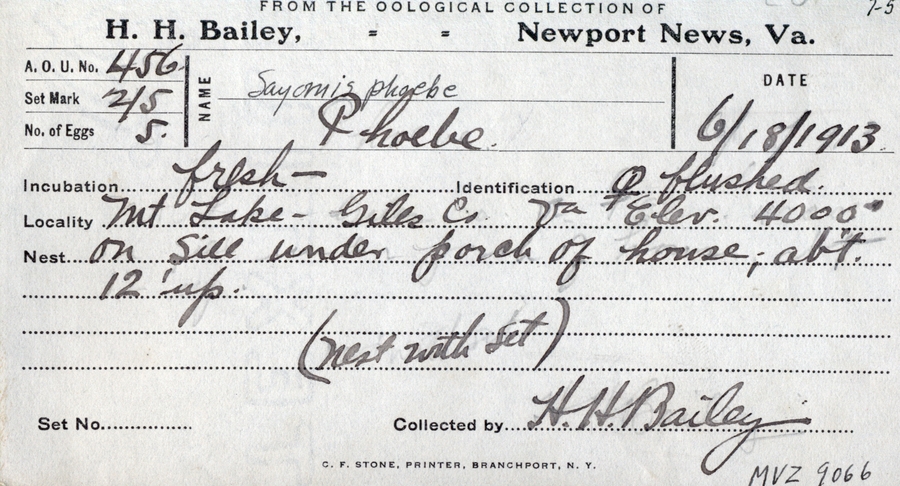 FROM THE OOLOGICAL COLLECTION OF 7-5
H. H. Bailey, = = Newport News, Va.
A. O. U. No. 456. NAME Sayornis phoebe DATE
Set Mark 2/5 Phoebe. 6/18/1913.
No. of Eggs 5.
Incubation fresh— Identification ♀ flushed.
Locality Mt Lake - Giles Co. Va Elev. 4000'
Nest on Sill under porch of house; abt.
12' up.
(nest with set)
Set No. Collected by H. H. Bailey
C. F. STONE, PRINTER, BRANCHPORT, N. Y.
MVZ 9066